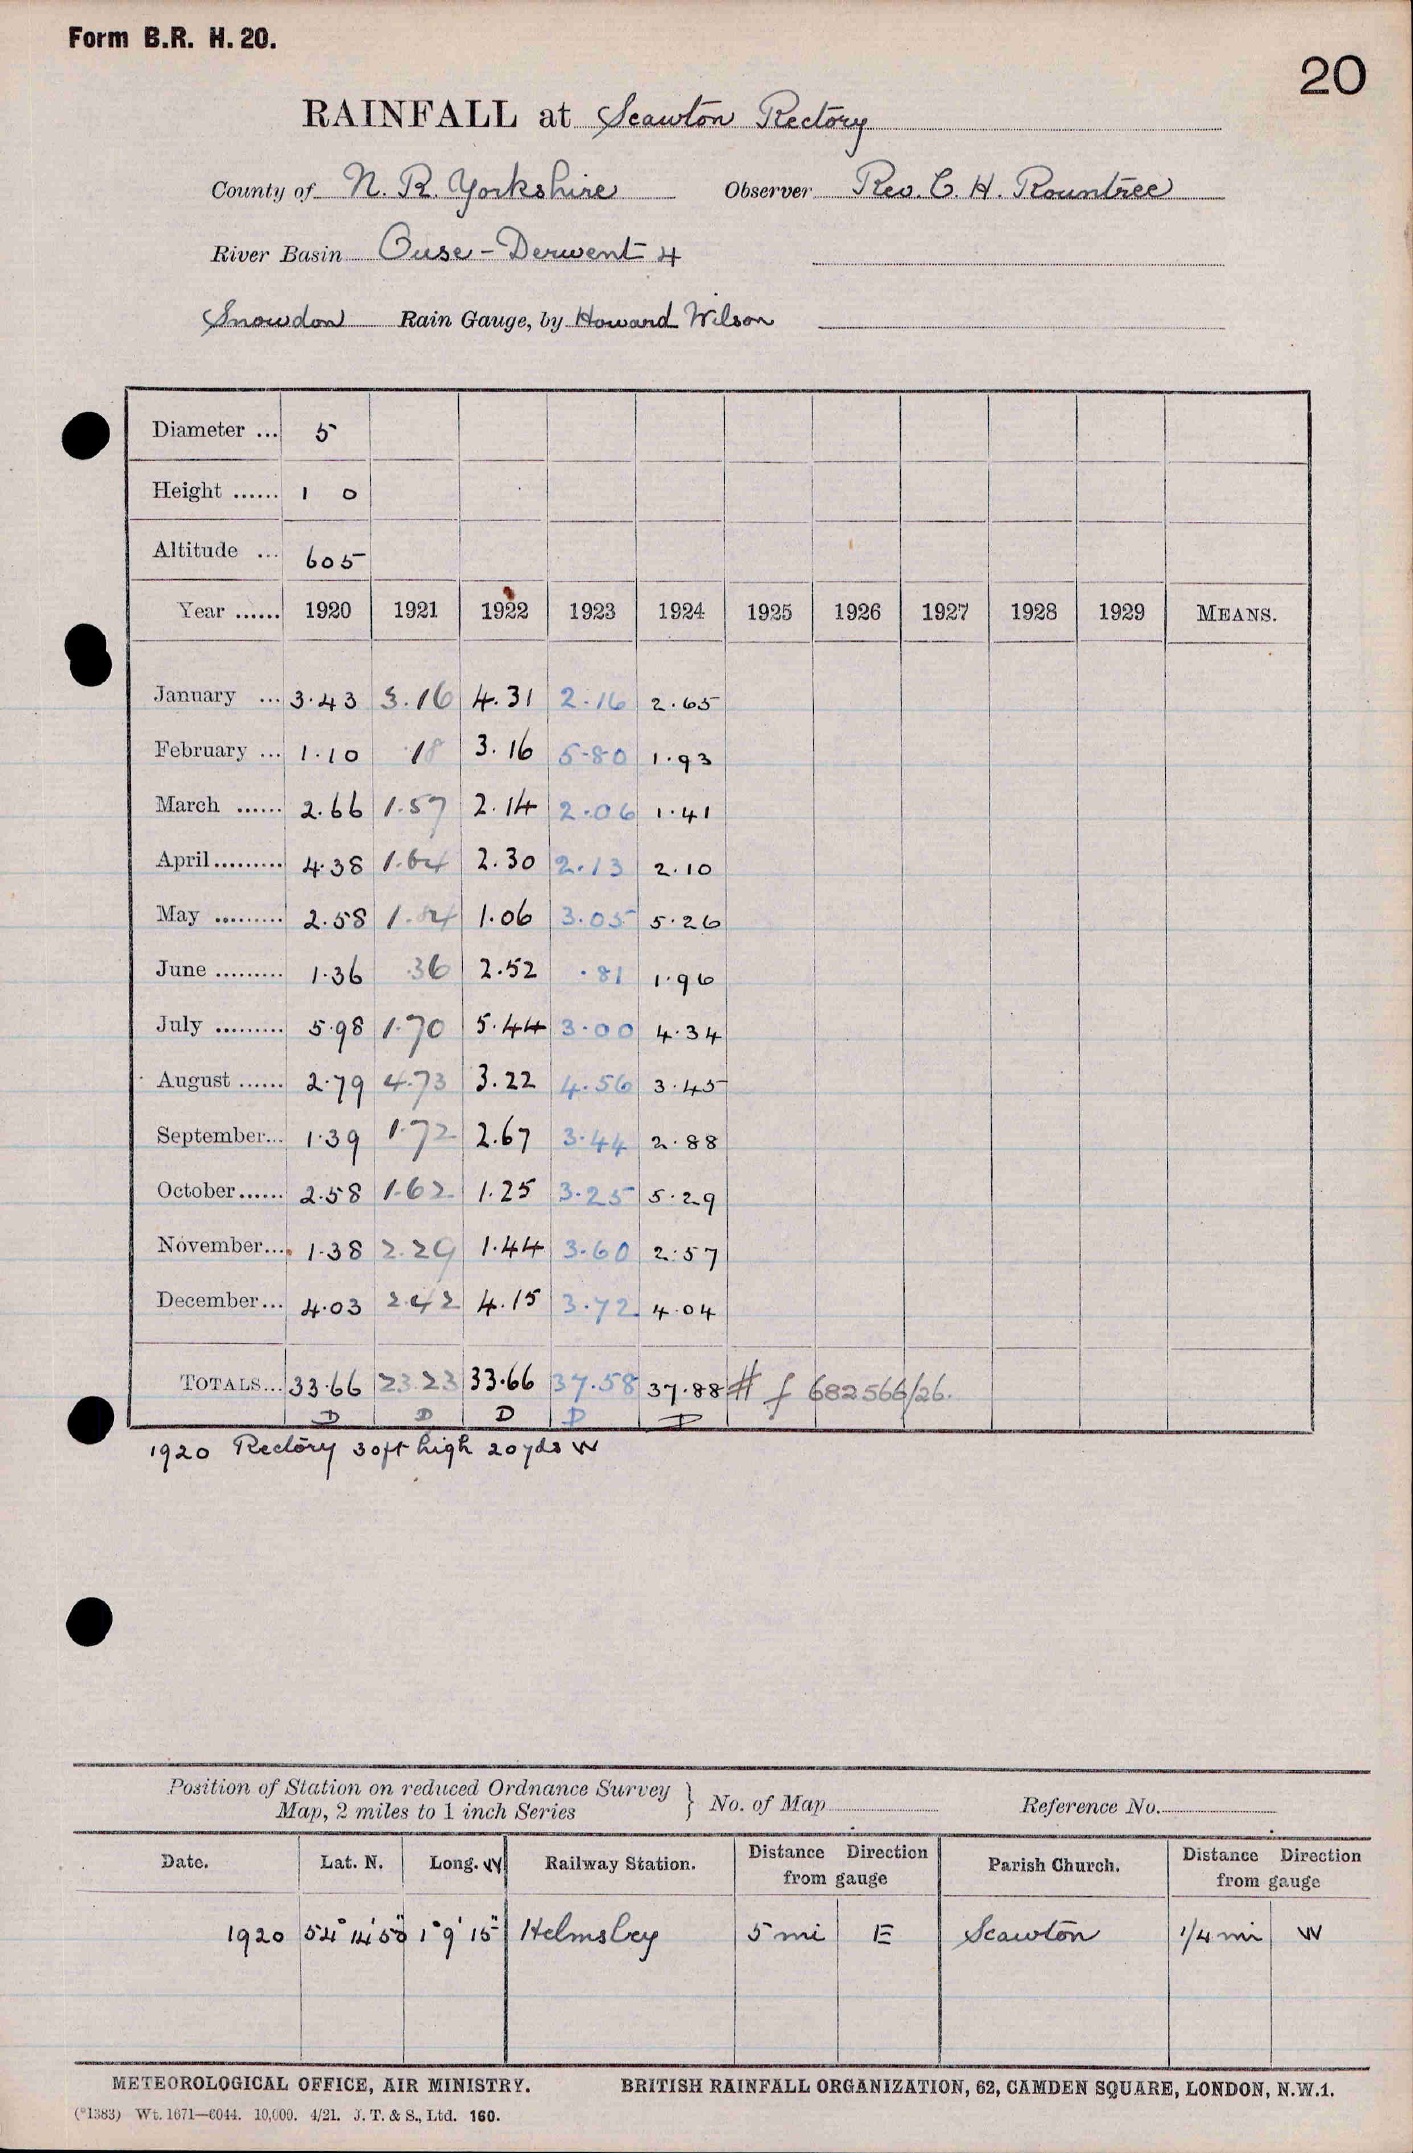 Form B.R. H. 20.
20
RAINFALL at Scawton Rectory
County of N. R. Yorkshire Observer Rev. C. H. Rountree
River Basin Ouse - Derwent 4
Snowdon Rain Gauge, by Howard Wilson
Diameter ... 5
Height ...... 1 0
Altitude ... 605
Year ...... 1920 1921 1922 1923 1924 1925 1926 1927 1928 1929 MEANS.
January ... 3.43 3.16 4.31 2.16 2.65
February ... 1.10 .18 3.16 5.80 1.93
March ...... 2.66 1.57 2.14 2.06 1.41
April ......... 4.38 1.64 2.30 2.13 2.10
May ......... 2.58 1.84 1.06 3.05 5.26
June ......... 1.36 .36 2.52 .81 1.96
July ......... 5.98 1.70 5.44 3.00 4.34
August ...... 2.79 4.73 3.22 4.56 3.45
September... 1.39 1.72 2.67 3.44 2.88
October...... 2.58 1.62 1.25 3.25 5.29
November... 1.38 2.29 1.44 3.60 2.57
December... 4.03 2.42 4.15 3.72 4.04
TOTALS... 33.66 23.23 33.66 37.58 37.88 # f 682566/26.
D D D D D
1920 Rectory 30ft high 20yds W
Position of Station on reduced Ordnance Survey
Map, 2 miles to 1 inch Series } No. of Map Reference No.
Date. Lat. N. Long. W Railway Station. Distance Direction from gauge Parish Church. Distance Direction from gauge
1920 54° 14' 50" 1° 9' 15" Helmsley 5 mi E Scawton 1/4 mi W
METEOROLOGICAL OFFICE, AIR MINISTRY. BRITISH RAINFALL ORGANIZATION, 62, CAMDEN SQUARE, LONDON, N.W.1.
(*1383) Wt. 1671—6044. 10,000. 4/21. J. T. & S., Ltd. 160.